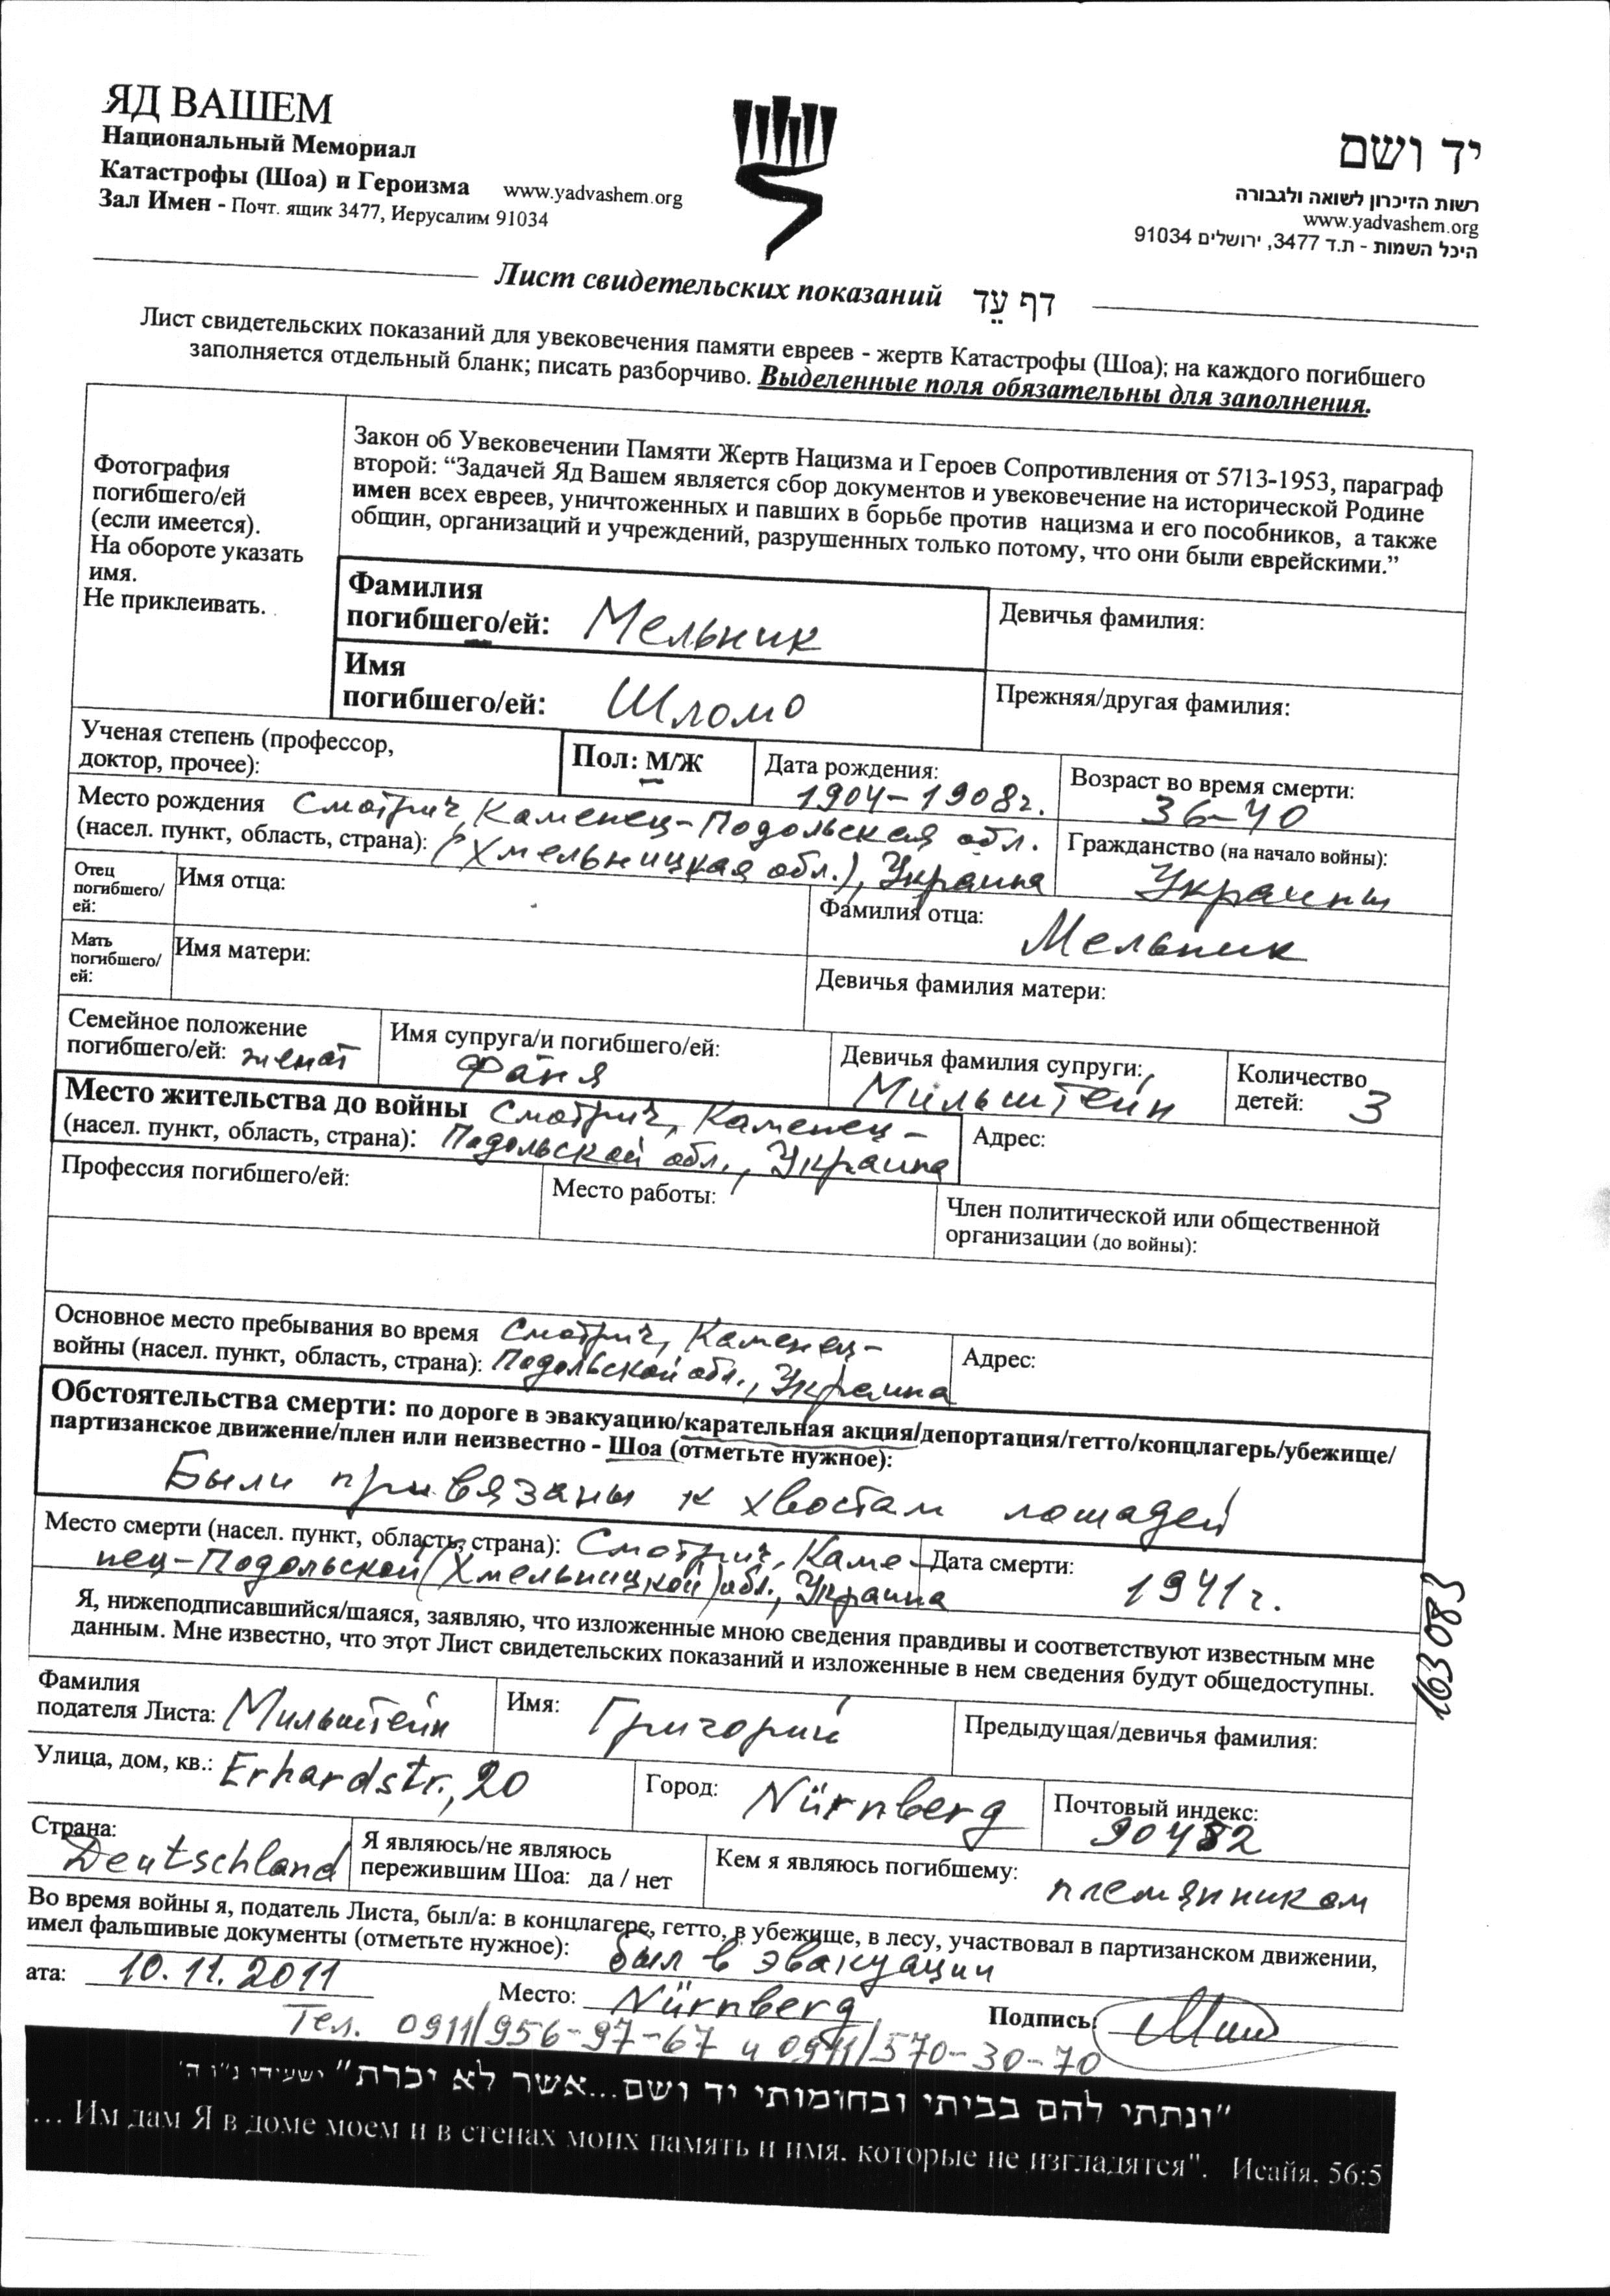 ЯД ВАШЕМ
Национальный Мемориал
Катастрофы (Шоа) и Героизма www.yadvashem.org
Зал Имен - Почт. ящик 3477, Иерусалим 91034
יד ושם
רשות הזיכרון לשואה ולגבורה
www.yadvashem.org
היכל השמות - ת.ד 3477, ירושלים 91034
Лист свидетельских показаний דף עֵד
Лист свидетельских показаний для увековечения памяти евреев - жертв Катастрофы (Шоа); на каждого погибшего
заполняется отдельный бланк; писать разборчиво. Выделенные поля обязательны для заполнения.
Фотография
погибшего/ей
(если имеется).
На обороте указать
имя.
Не приклеивать.
Закон об Увековечении Памяти Жертв Нацизма и Героев Сопротивления от 5713-1953, параграф
второй: “Задачей Яд Вашем является сбор документов и увековечение на исторической Родине
имен всех евреев, уничтоженных и павших в борьбе против нацизма и его пособников, а также
общин, организаций и учреждений, разрушенных только потому, что они были еврейскими.”
Фамилия
погибшего/ей: Мельник
Девичья фамилия:
Имя
погибшего/ей: Шломо
Прежняя/другая фамилия:
Ученая степень (профессор,
доктор, прочее):
Пол: М/Ж
Дата рождения:
1904-1908г.
Возраст во время смерти:
36-40
Место рождения Смотрич, Каменец-Подольская обл.
(насел. пункт, область, страна): (Хмельницкая обл.), Украина
Гражданство (на начало войны):
Украины
Отец
погибшего/
ей:
Имя отца:
Фамилия отца:
Мельник
Мать
погибшего/
ей:
Имя матери:
Девичья фамилия матери:
Семейное положение
погибшего/ей: женат
Имя супруга/и погибшего/ей:
Фаня
Девичья фамилия супруги:
Мильштейн
Количество
детей: 3
Место жительства до войны Смотрич, Каменец-
(насел. пункт, область, страна): Подольской обл., Украина
Адрес:
Профессия погибшего/ей:
Место работы:
Член политической или общественной
организации (до войны):
Основное место пребывания во время Смотрич, Каменец-
войны (насел. пункт, область, страна): Подольской обл., Украина
Адрес:
Обстоятельства смерти: по дороге в эвакуацию/карательная акция/депортация/гетто/концлагерь/убежище/
партизанское движение/плен или неизвестно - Шоа (отметьте нужное):
Были привязаны к хвостам лошадей
Место смерти (насел. пункт, область, страна): Смотрич, Каме-
нец-Подольской (Хмельницкой) обл., Украина
Дата смерти:
1941г.
163083
Я, нижеподписавшийся/шаяся, заявляю, что изложенные мною сведения правдивы и соответствуют известным мне
данным. Мне известно, что этот Лист свидетельских показаний и изложенные в нем сведения будут общедоступны.
Фамилия
подателя Листа: Мильштейн
Имя: Григорий
Предыдущая/девичья фамилия:
Улица, дом, кв.: Erhardstr., 20
Город: Nürnberg
Почтовый индекс:
90482
Страна:
Deutschland
Я являюсь/не являюсь
пережившим Шоа: да / нет
Кем я являюсь погибшему:
племянником
Во время войны я, податель Листа, был/а: в концлагере, гетто, в убежище, в лесу, участвовал в партизанском движении,
имел фальшивые документы (отметьте нужное): был в эвакуации
ата: 10.11.2011
Место: Nürnberg
Подпись:
Тел. 0911/956-97-67 и 0911/570-30-70
"ונתתי להם בביתי ובחומותי יד ושם...אשר לא יכרת" ישעיהו נ"ו ה'
"... Им дам Я в доме моем и в стенах моих память и имя, которые не изгладятся". Исайя, 56:5